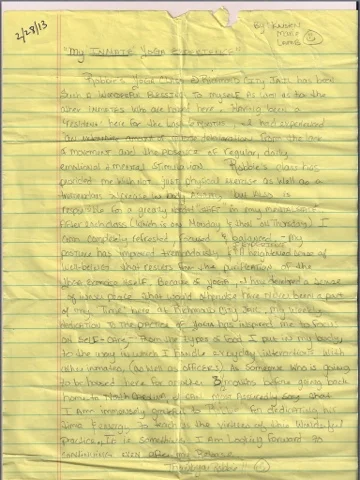 2/28/13
By: KAREN
MARIE
LAMB
"My INMATE YOGA EXPERIENCE"
Robbie's YOGA Class @ Richmond City JAIL has been
Such a WONDERFUL BLESSING to myself AS WELL AS to the
other INMATES who are housed here. Having been a
resident here for the last months, I had experienced
an amount of from the lack
of movement and the absence of regular, daily
emotional & mental stimulation. Robbie's class has
provided me with not just physical exercise as well as a
tremendous increase in body but ALSO is
responsible for a greatly in my
After each class (which is on Monday & that on Thursday) I
completely refreshed focused & balanced. My
posture has improved tremendously. A heightened sense of
well-being that results from the purification of the
YOGA exercise itself. Because of yoga, I have developed a sense
of inner peace that would otherwise have never been a part
of my "time" here at Richmond City Jail. My weekly
dedication to the practice of YOGA has inspired me to focus
on SELF-CARE; from the types of food I put in my body
to the way in which I handle everyday interactions with
other inmates (as well as officers). As someone who is going
to be housed here for another 3 months before going back
home to North Carolina, I can most assuredly say that
I am immensely grateful to for dedicating his
time & energy to teach us the virtues of this wonderful
practice. It is something I am looking forward to
continuing even after my Release.
Thank you Robbie!